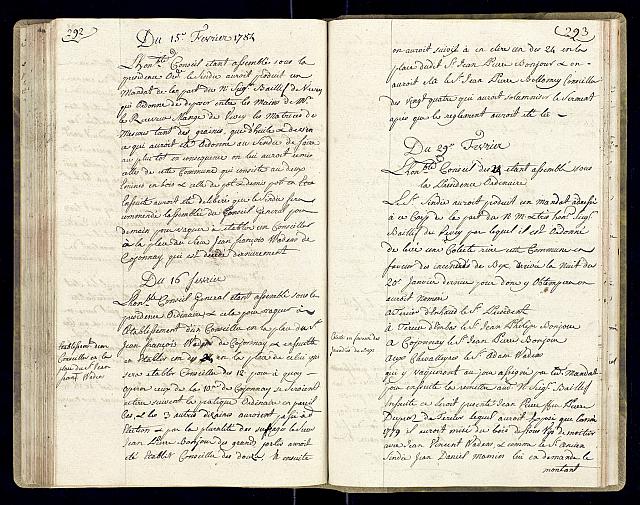 292
Du 15e Fevrier 1784
L'hon.ble Conseil etant assemblé sous la
présidence Ord. le Sindic auroit produit un
Mandat de la part du N. Seig. Baillif de Vevey
qui ordonne de deposer entre les Mains de Mr.
le Receveur de Vevey les Matrices de
Mesures tant des graines, que d'huile & de vin
a quoi auroit été Ordonné au Sindic de faire
au plutot en consequence on lui auroit remis
celle de cette Commune qui consiste au deux
émines en bois & celle de pot & demis pot en
Ensuite auroit été deliberé que le Sindic fera
commander l'assemblée du Conseil General pour
demain pour vaquer a etablir un Conseiller
à la place du Sieur Jean François Wadens de
Cojonnay qui est decedé dernierement
Du 16 fevrier
L'hon.ble Conseil General etant assemblé sous la
présidence Ordinaire & cela pour vaquer à
l'établissement d'un Conseiller en la place du Sr.
Jean françois Wadens de Cojonnay & ensuite
en établir un des 24 en la place de celui qui
sera etablir Conseiller des 12 pour à quoy
opérer ceux de la de Cojonnay se seroient
retiré suivant la pratique Ordinaire en pareil
cas & les 3 autres dixains auroient passé à
Election & par la pluralité des suffrages le Sieur
Jean Pierre Bonjour du grand auroit
été établit Conseiller des douze. & ensuite
établissement d'un
Conseiller en la
place du Sr. Jean
franç. Wadens
293
on auroit suivit à en elire un des 24 en la
place dudit Sr. Jean Pierre Bonjour & on
auroit elu le Sr. Jean Pierre Conseiller
des Vingt quatre qui auroit solemnisé le Serment
apres que le reglement auroit été lu
Du 29e Fevrier
L'hon.ble Conseil des 24 etant assemblé sous
la Présidence Ordinaire
Le Sr. Sindic auroit produit un mandat adressé
à ce Corps de la part du N. M. & tres hon. Seig.
Baillif de Vevey par lequel il est Ordonné
de faire une Colecte riere cette Commune en
faveur des incendiés de Bex arrivée la Nuit du
20e Janvier dernier pour donc y obtemperer on
auroit Nommé
le Sr. Président
à d'enbas le Sr. Jean Philipe Bonjour
à Cojonnay le Sr. Jean Pierre Bonjour
aux Chevalleyres le Sr. Adam Wadens
qui y vaqueront au jour assigné par led. Mandat
pour ensuite la remettre au N. Seig.r Baillif
Ensuite se seroit presenté Jean Pierre feu Pierre
lequel auroit exposé que l'année
1779 il auroit misé du bois
avec Jean Vincent Wadens & comme le Sr. ancien
Sindic Jean Daniel Mamin lui en demande le
montant
Colecte en faveur des
Incendiés de Bex